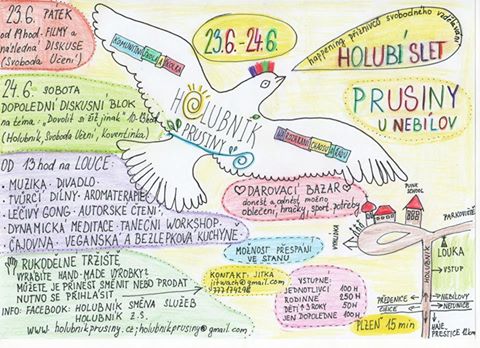 23.6. PÁTEK
od 19hod - FILMY a
následná DISKUSE
(Svoboda Učení)
24.6. SOBOTA
DOPOLEDNÍ DISKUSNÍ BLOK
na téma - „Dovolit si žít jinak"
(Holubník, Svoboda Učení, Koventinka)
OD 13hod na LOUCE:
• MUZIKA • DIVADLO •
TVŮRČÍ DÍLNY • AROMATERAPIE
LÉČIVÝ GONG • AUTORSKÉ ČTENÍ •
DYNAMICKÁ MEDITACE • TANEČNÍ WORKSHOP •
ČAJOVNA • VEGANSKÁ A BEZLEPKOVÁ KUCHYNĚ •
RUKODĚLNÉ TRŽIŠTĚ
VYRÁBÍTE HAND-MADE VÝROBKY?
MŮŽETE JE PŘINÉST SMĚNIT NEBO PRODAT
NUTNO SE PŘIHLÁSIT
INFO: FACEBOOK: HOLUBNÍK SMĚNA SLUŽEB
HOLUBNÍK Z.S.
www.holubnikprusiny.cz; holubnikprusiny@gmail.com
KOMUNITNÍ ŠKOLA A ŠKOLKA
23.6.-24.6.
HOLUBNÍK
PRUSINY
happening příznivců svobodného vzdělávání
HOLUBÍ SLET
PRUSINY
U NEBÍLOV
DAROVACÍ BAZAR
doneste a odneste, možno
oblečení, hračky, sport. potřeby
MOŽNOST PŘESPÁNÍ
VE STANU
KONTAKT: JITKA
VSTUPNÉ:
JEDNOTLIVCI 100 H
RODINNÉ 250 H
DĚTI ↑ 3 ROKY 50 H
JEN DOPOLEDNE 100 H
PUNK
SCHOOL
PARKOVIŠTĚ
VYHLÍDKA
HOLUBNÍK
LOUKA
VSTUP
PŘEDENICE
NEBÍLOVY
ČIŽICE
NETUNICE
PLZEŇ 15 min
HÁJE,
PŘEŠTICE 12km